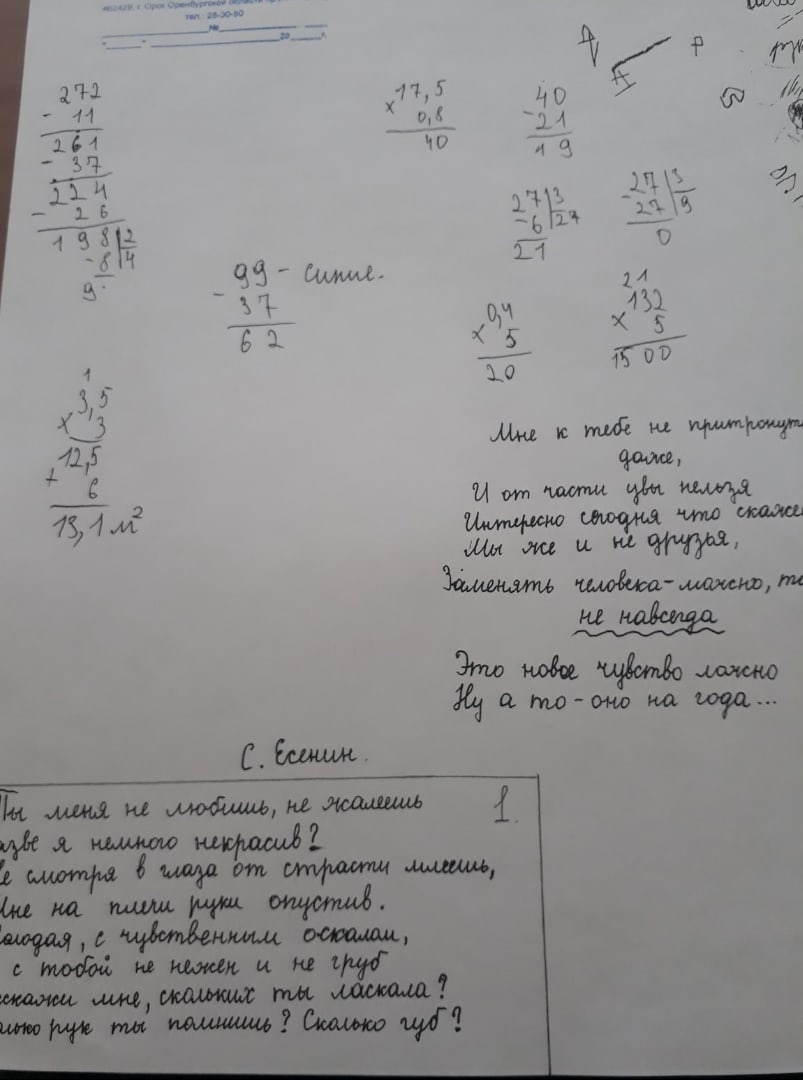 462429, г. Орск Оренбургской области
тел.: 28-30-60
№
" " 20 г.
272
- 11
261
- 37
224
- 26
198|2
-8|4
9
99 - синие.
- 37
62
1
3,5
x 3
12,5
+ 6
13,1 м²
17,5
x 0,8
40
40
- 21
19
27|3
-6|27
21
27|3
-27|9
0
0,4
x 5
20
21
132
x 5
1500
Мне к тебе не притронут
даже,
И от части увы нельзя
Интересно сегодня что скаже
Мы же и не друзья,
Заменять человека-можно, то
не навсегда
Это новое чувство ложно
Ну а то-оно на года...
С. Есенин.
1.
Ты меня не любишь, не жалеешь
азве я немного некрасив?
е смотря в глаза от страсти млеешь,
Мне на плечи руки опустив.
олодая, с чувственным оскалом,
с тобой не нежен и не груб
скажи мне, скольких ты ласкала?
олько рук ты помнишь? Сколько губ?